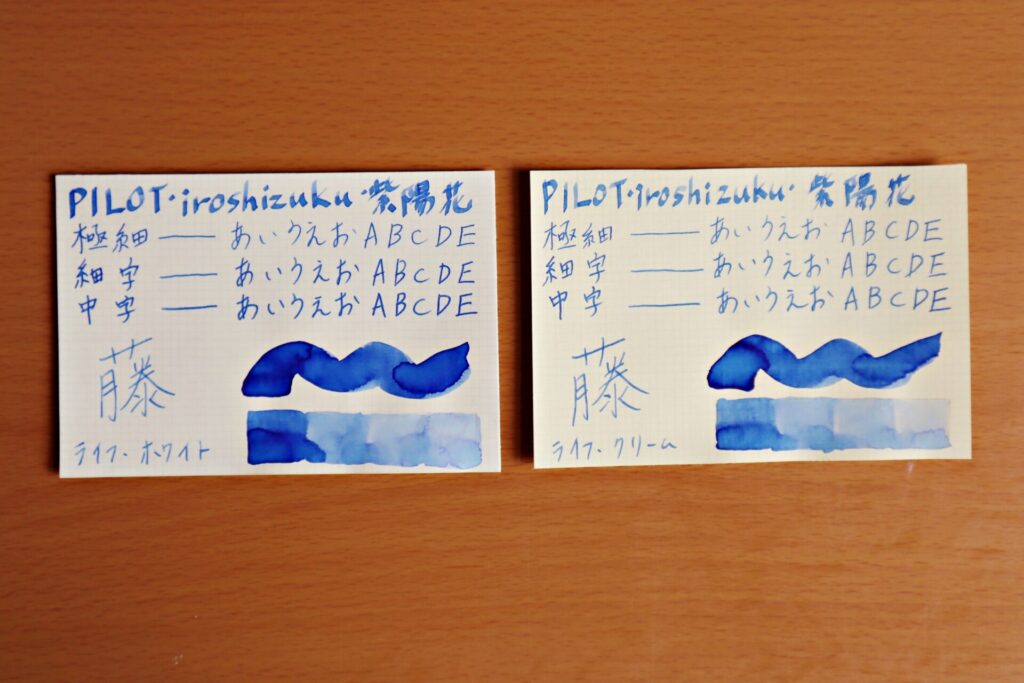 PILOT・iroshizuku・紫陽花
極細 ― あいうえお ABCDE
細字 ― あいうえお ABCDE
中字 ― あいうえお ABCDE
藤
ライフ・ホワイト
PILOT・iroshizuku・紫陽花
極細 ― あいうえお ABCDE
細字 ― あいうえお ABCDE
中字 ― あいうえお ABCDE
藤
ライフ・クリーム